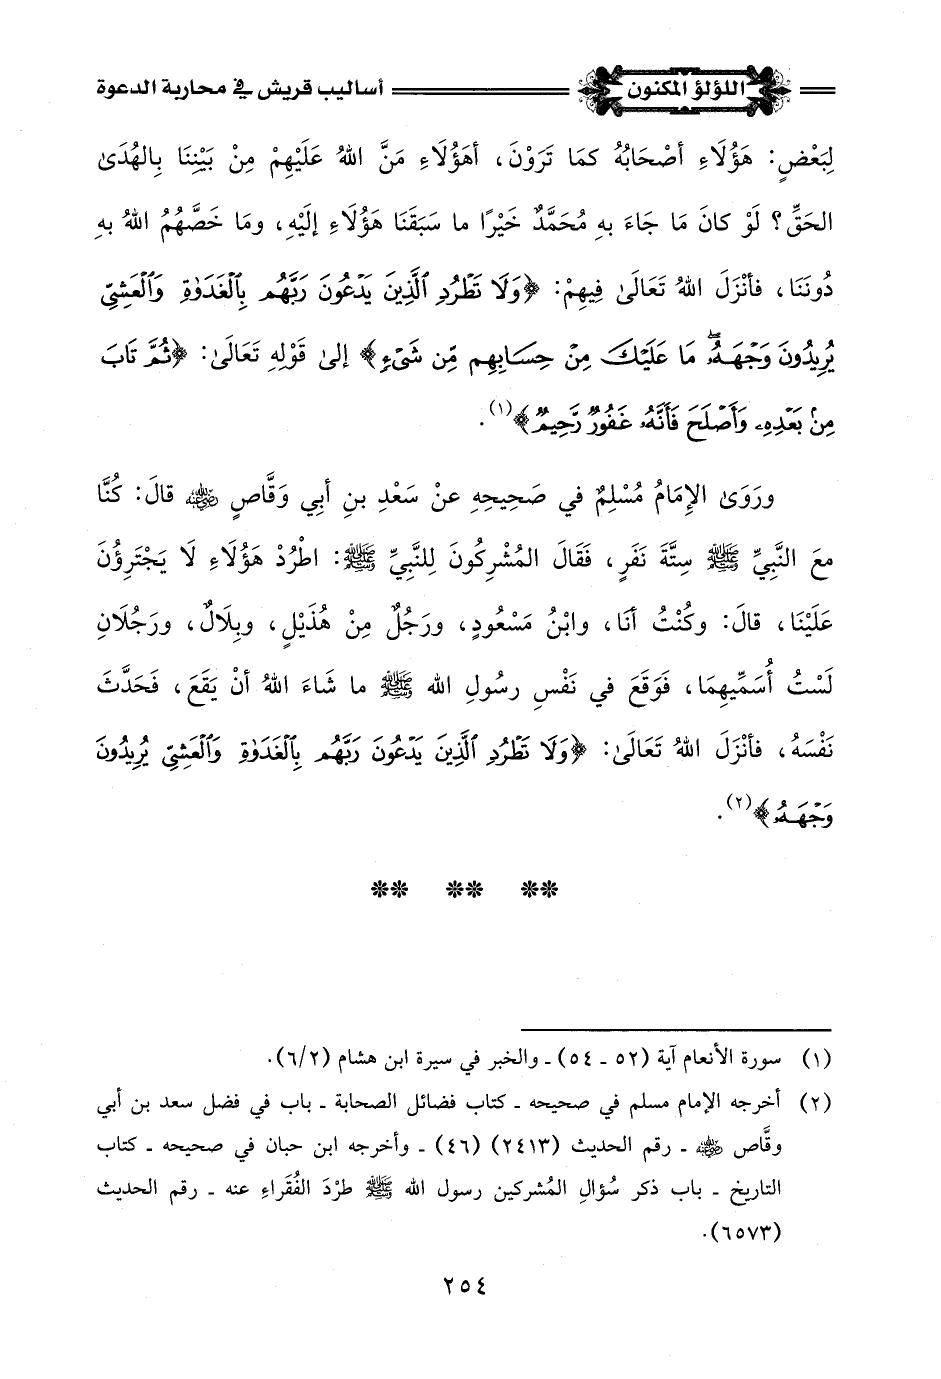 اللؤلؤ المكنون أساليب قريش في محاربة الدعوة
لِبَعْضٍ: هَؤُلَاءِ أصْحَابُهُ كمَا تَرَوْنَ، أهَؤُلَاءِ مَنَّ اللهُ عَلَيْهِمْ مِنْ بَيْنِنَا بِالهُدَىٰ
الحَقِّ؟ لَوْ كانَ مَا جَاءَ بهِ مُحَمَّدٌ خَيْرًا ما سَبَقَنَا هَؤُلَاءِ إلَيْهِ، ومَا خَصَّهُمُ اللهُ بهِ
دُونَنَا، فأنْزَلَ اللهُ تَعَالَىٰ فِيهِمْ: ﴿وَلَا تَطْرُدِ ٱلَّذِينَ يَدْعُونَ رَبَّهُم بِٱلْغَدَوٰةِ وَٱلْعَشِيِّ
يُرِيدُونَ وَجْهَهُۥۖ مَا عَلَيْكَ مِنْ حِسَابِهِم مِّن شَىْءٍ﴾ إلىٰ قَوْلِهِ تَعَالَىٰ: ﴿ثُمَّ تَابَ
مِنۢ بَعْدِهِۦ وَأَصْلَحَ فَأَنَّهُۥ غَفُورٌ رَّحِيمٌ﴾(١).
ورَوَىٰ الإمَامُ مُسْلِمٌ في صَحِيحِهِ عنْ سَعْدِ بنِ أبي وَقَّاصٍ رضي الله عنه قالَ: كُنَّا
معَ النَّبِيِّ ﷺ سِتَّةَ نَفَرٍ، فَقَالَ المُشْرِكُونَ لِلنَّبِيِّ ﷺ: اطْرُدْ هَؤُلَاءِ لَا يَجْتَرِؤُنَ
عَلَيْنَا، قالَ: وكُنْتُ أنَا، وابْنُ مَسْعُودٍ، ورَجُلٌ مِنْ هُذَيْلٍ، وبِلَالٌ، ورَجُلَانِ
لَسْتُ أُسَمِّيهِمَا، فَوَقَعَ في نَفْسِ رسُولِ الله ﷺ ما شَاءَ اللهُ أنْ يَقَعَ، فَحَدَّثَ
نَفْسَهُ، فأنْزَلَ اللهُ تَعَالَىٰ: ﴿وَلَا تَطْرُدِ ٱلَّذِينَ يَدْعُونَ رَبَّهُم بِٱلْغَدَوٰةِ وَٱلْعَشِيِّ يُرِيدُونَ
وَجْهَهُۥ﴾(٢).
(١) سورة الأنعام آية (٥٢ ـ ٥٤) ـ والخبر في سيرة ابن هشام (٦/٢).
(٢) أخرجه الإمام مسلم في صحيحه ـ كتاب فضائل الصحابة ـ باب في فضل سعد بن أبي
وقَّاص رضي الله عنه ـ رقم الحديث (٢٤١٣) (٤٦) ـ وأخرجه ابن حبان في صحيحه ـ كتاب
التاريخ ـ باب ذكر سُؤالِ المُشركين رسول الله ﷺ طرْدَ الفُقَراءِ عنه ـ رقم الحديث
(٦٥٧٣).
٢٥٤